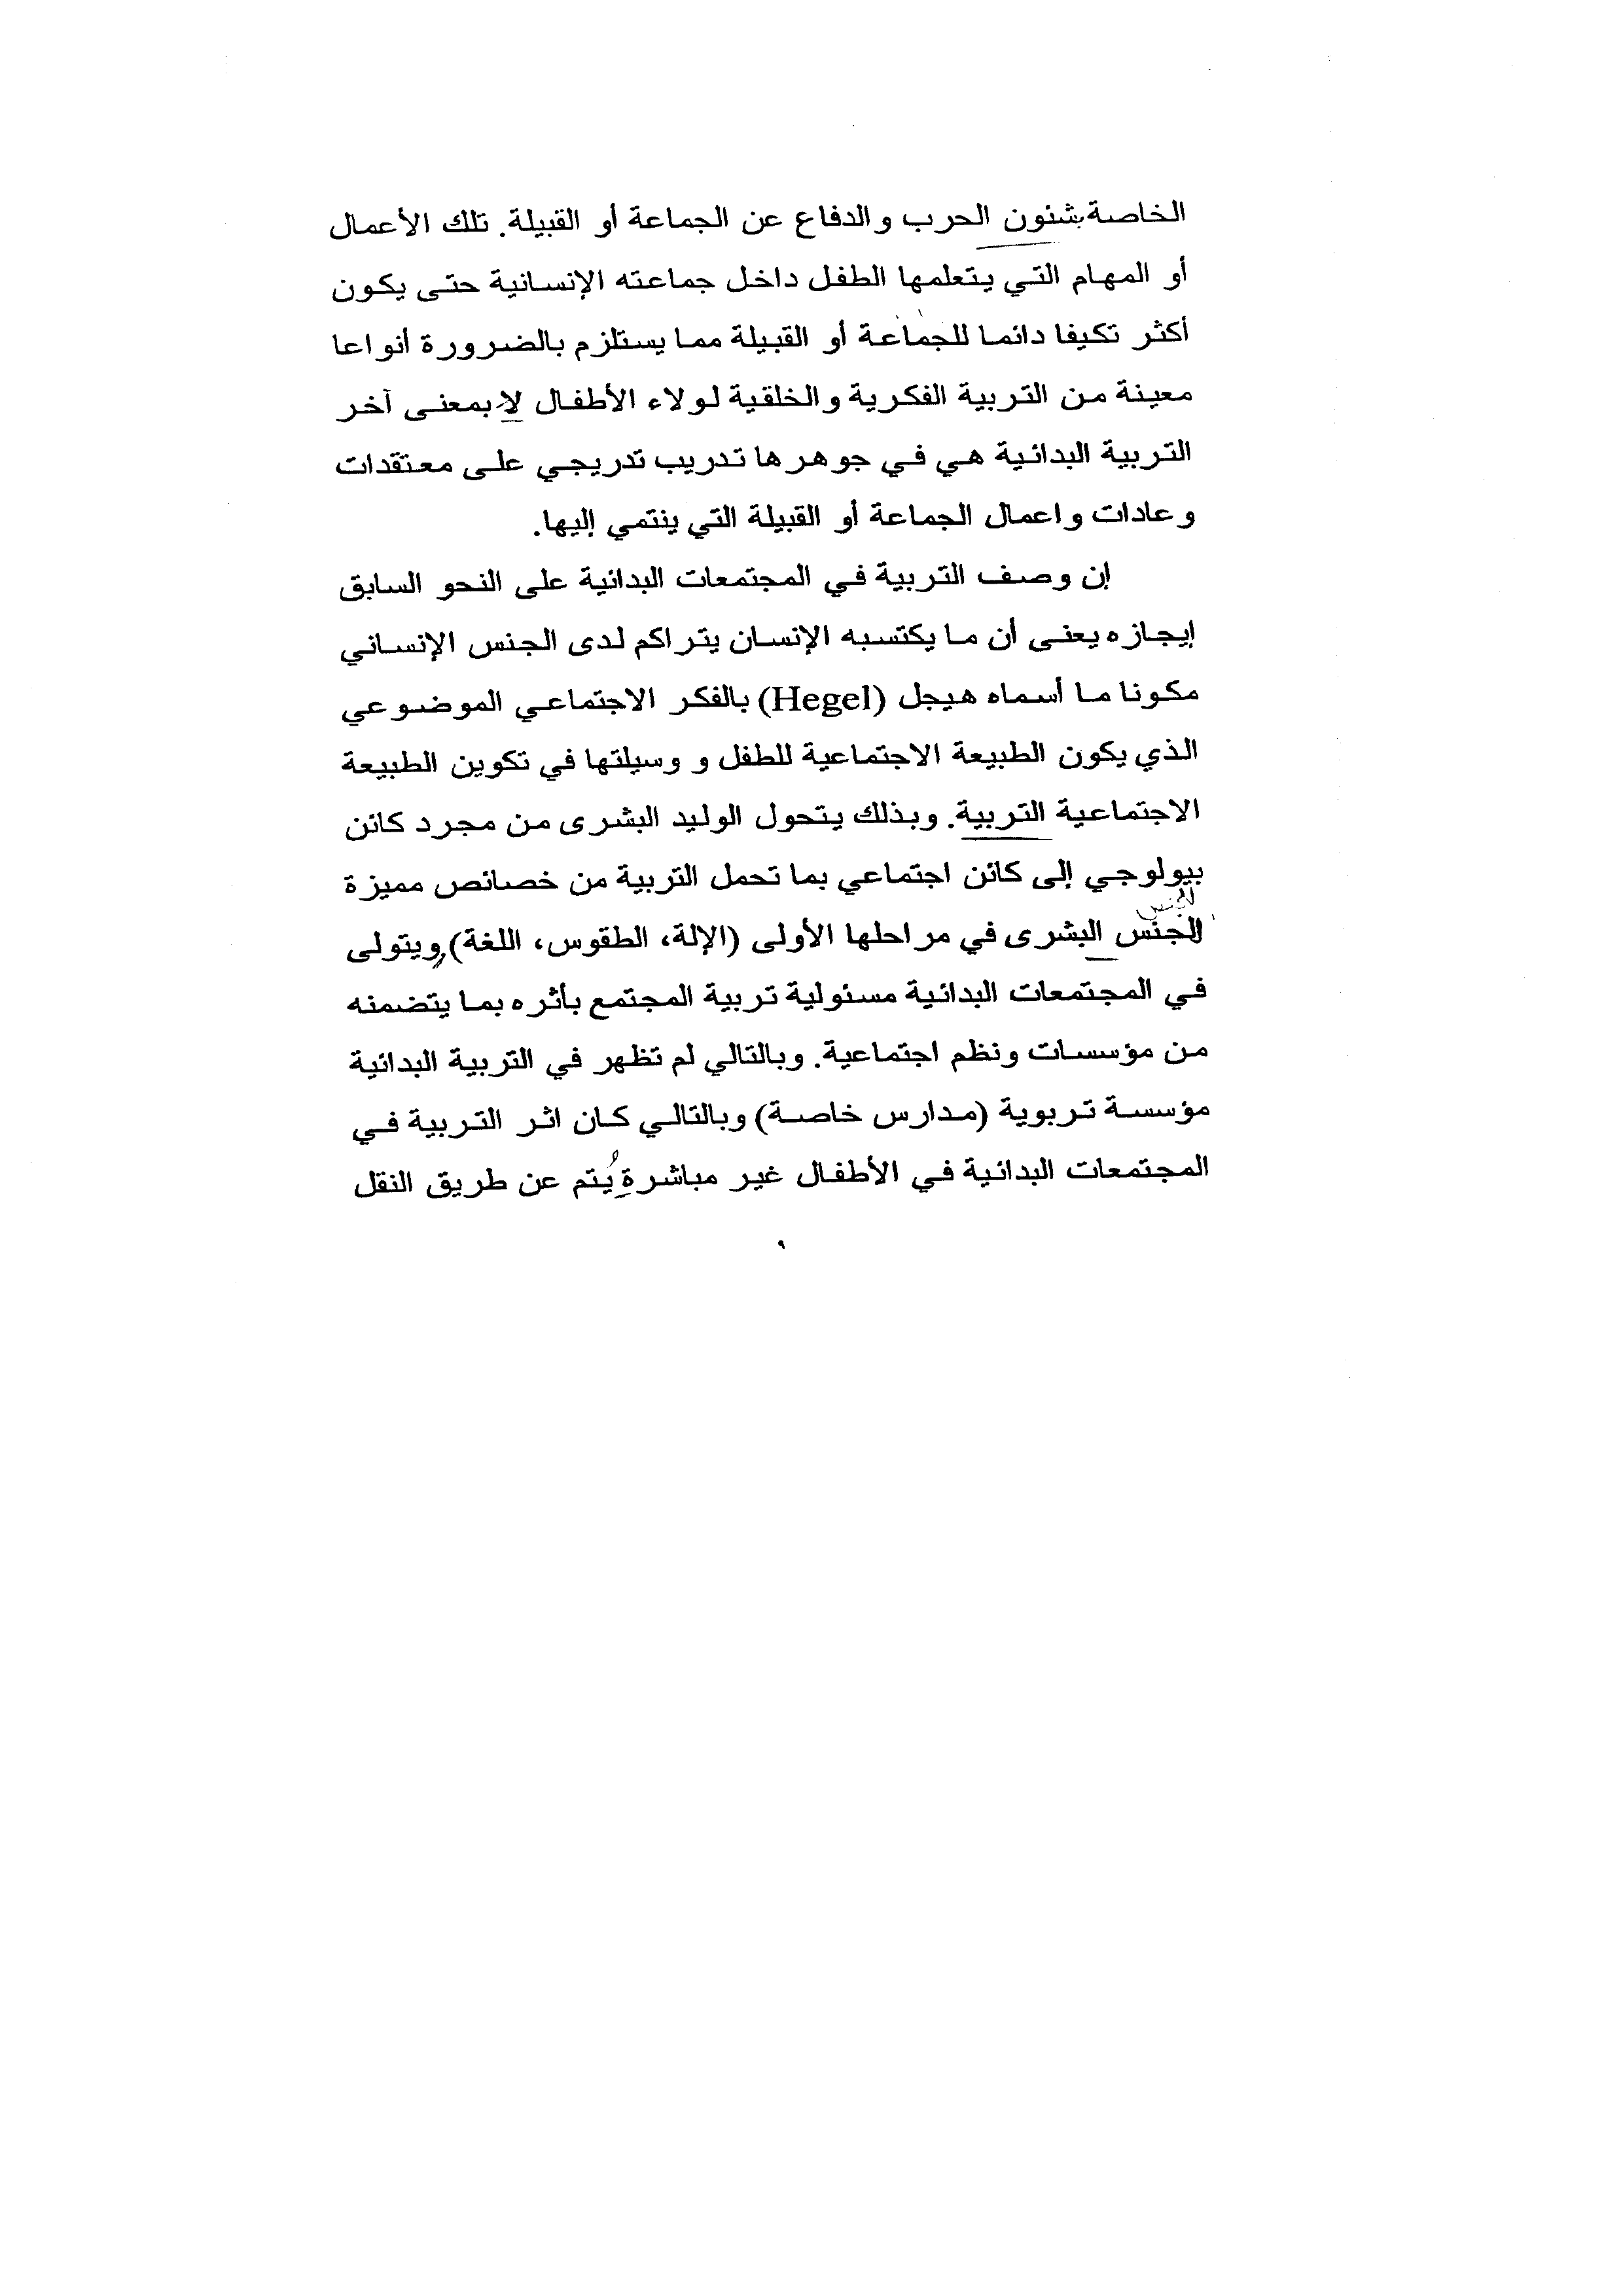 الخاصة بشئون الحرب والدفاع عن الجماعة أو القبيلة. تلك الأعمال
أو المهام التي يتعلمها الطفل داخل جماعته الإنسانية حتى يكون
أكثر تكيفا دائما للجماعة أو القبيلة مما يستلزم بالضرورة أنواعا
معينة من التربية الفكرية والخلقية لولاء الأطفال لا بمعنى آخر
التربية البدائية هي في جوهرها تدريب تدريجي على معتقدات
وعادات واعمال الجماعة أو القبيلة التي ينتمي إليها.
إن وصف التربية في المجتمعات البدائية على النحو السابق
إيجازه يعنى أن ما يكتسبه الإنسان يتراكم لدى الجنس الإنساني
مكونا ما أسماه هيجل (Hegel) بالفكر الاجتماعي الموضوعي
الذي يكون الطبيعة الاجتماعية للطفل و وسيلتها في تكوين الطبيعة
الاجتماعية التربية. وبذلك يتحول الوليد البشرى من مجرد كائن
بيولوجي إلى كائن اجتماعي بما تحمل التربية من خصائص مميزة
للجنس
الجنس البشرى في مراحلها الأولى (الإلة، الطقوس، اللغة) ويتولى
في المجتمعات البدائية مسئولية تربية المجتمع بأثره بما يتضمنه
من مؤسسات ونظم اجتماعية. وبالتالي لم تظهر في التربية البدائية
مؤسسة تربوية (مدارس خاصة) وبالتالي كان اثر التربية في
المجتمعات البدائية في الأطفال غير مباشرة يتم عن طريق النقل
٩